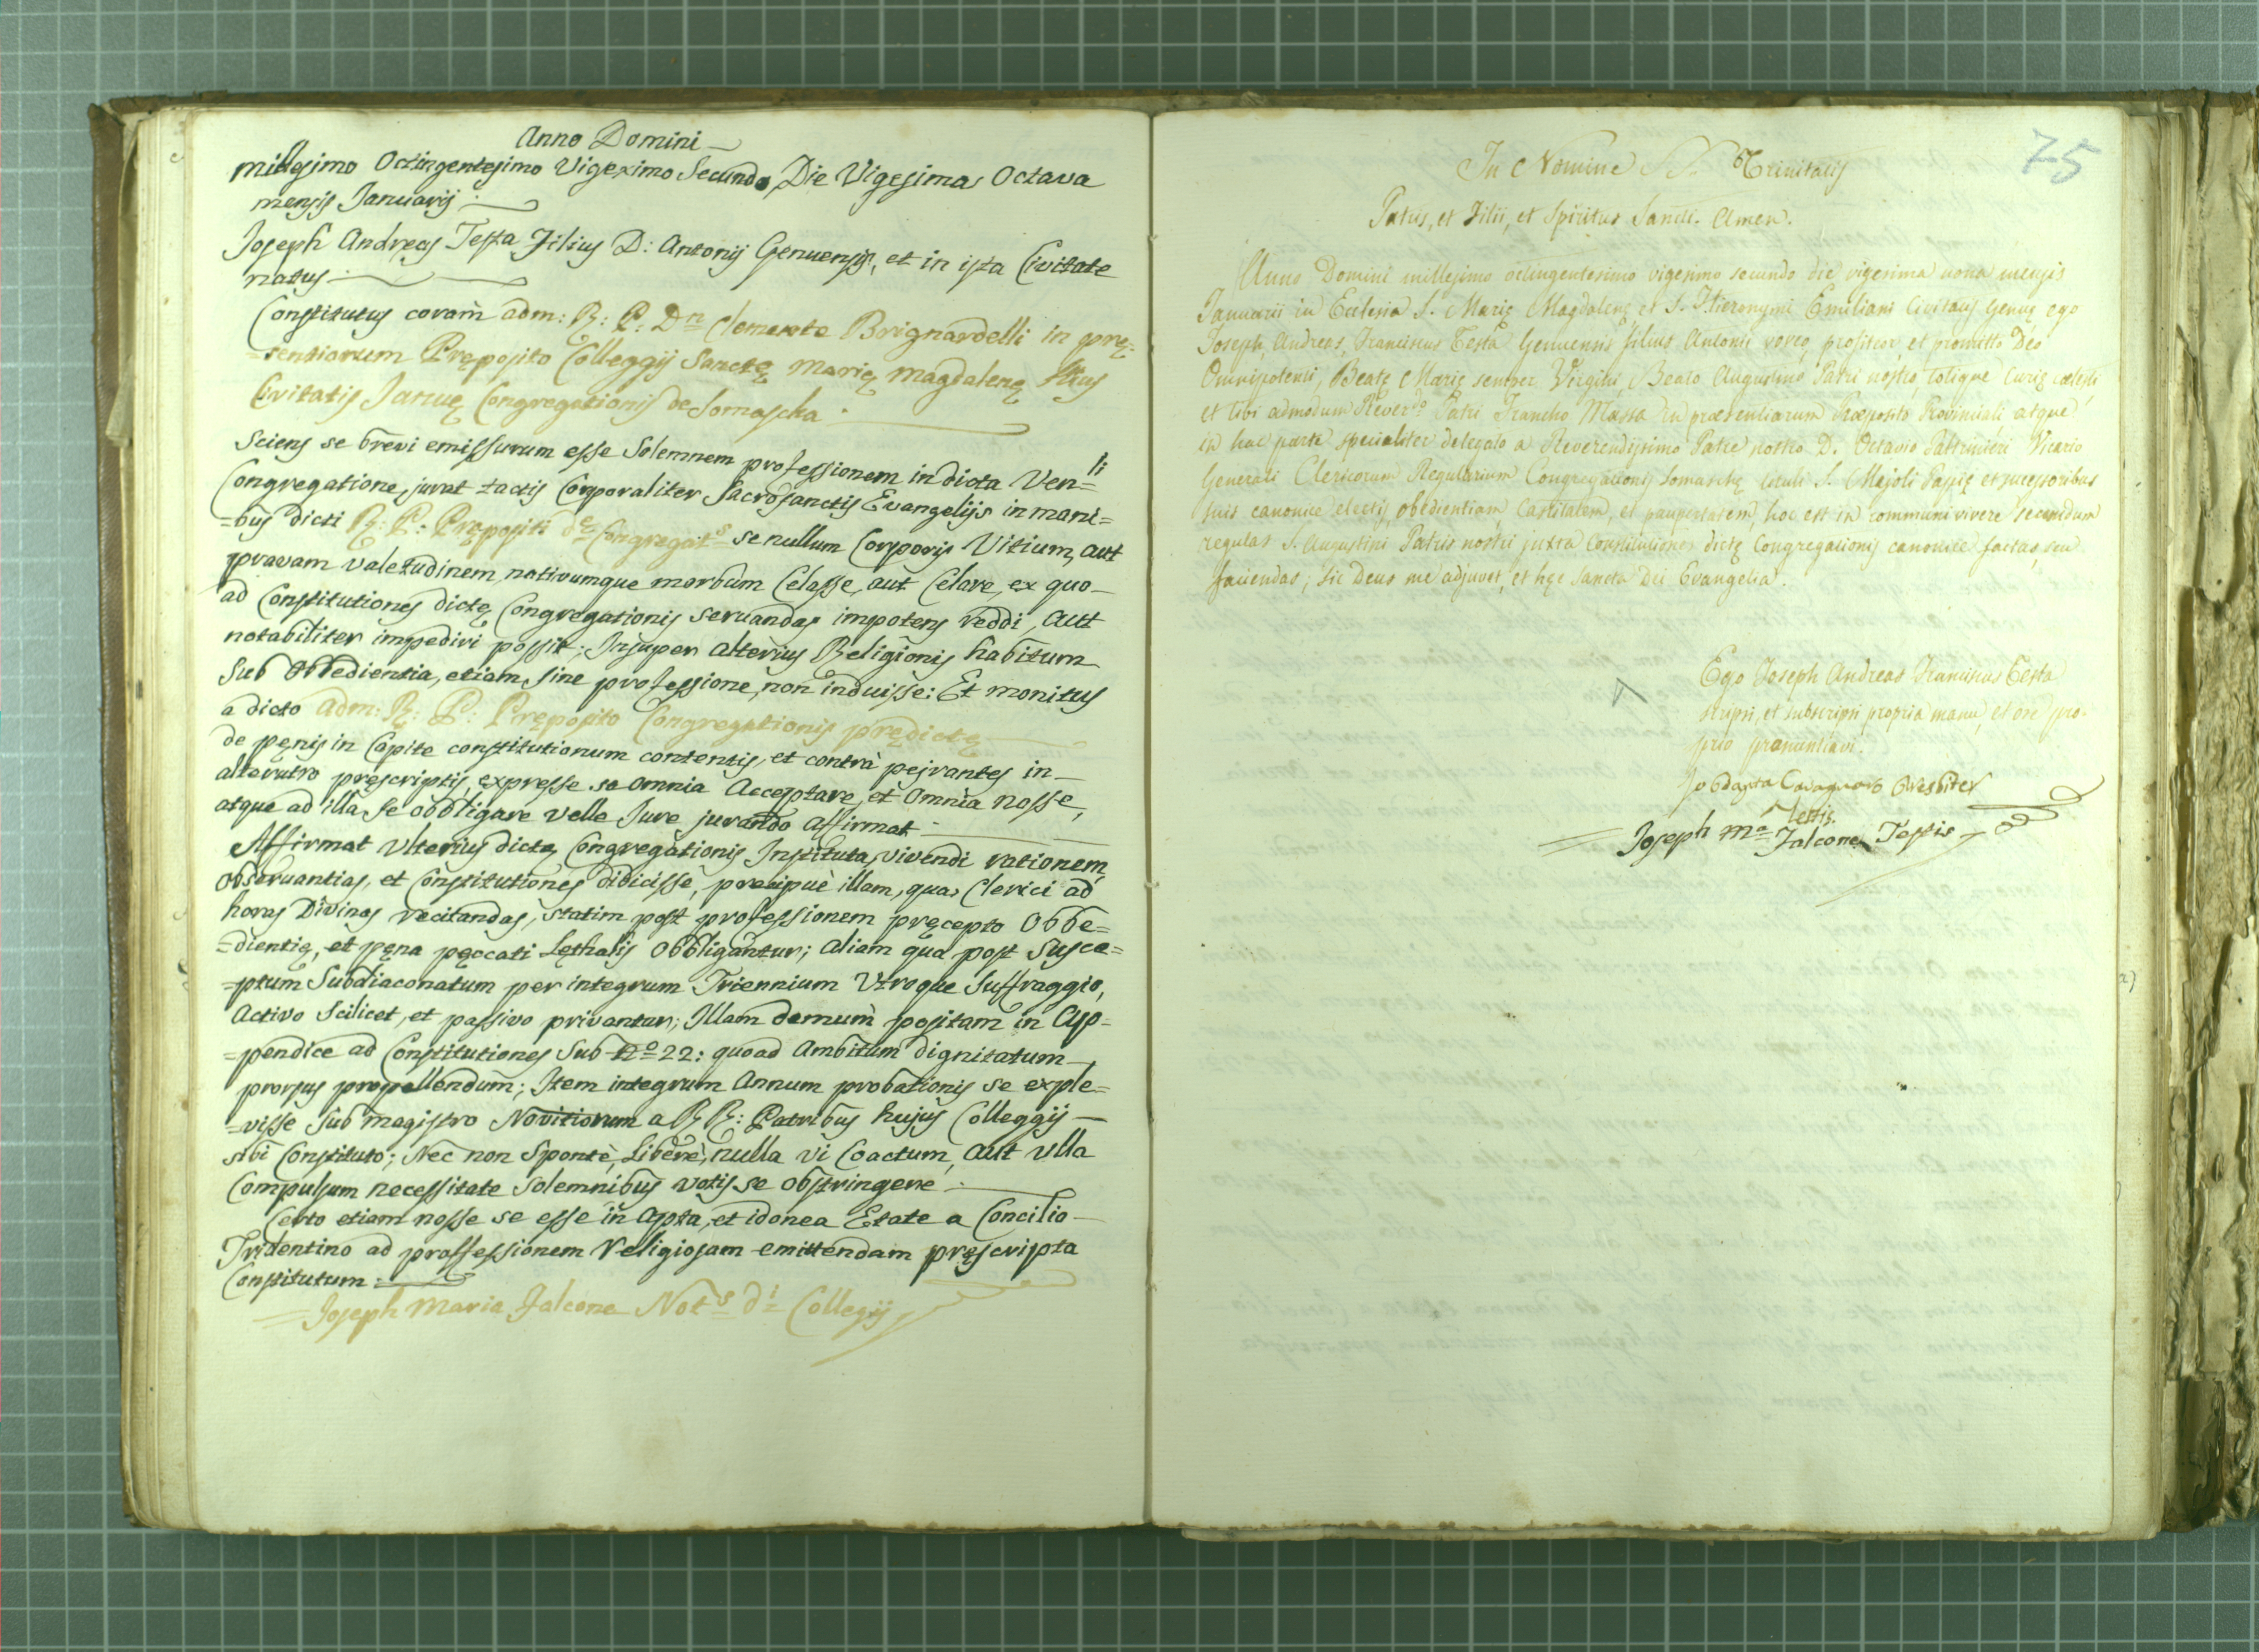 Anno Domini
millesimo Octingentesimo Vigeximo Secundo, Die Vigesima Octava
mensis Januarij
Joseph Andreas Testa Filius D: Antonij Genuensis, et in ista Civitate
natus
Constitutus coram adm: R: P: Dn Clemente Brignardelli in prę=
=sentiarum Pręposito Colleggij Sanctę Marię Magdalenę
Civitatis Januę Congregationis de Somascha
Sciens se brevi emissurum esse Solemnem professionem in dicta Ven=li
Congregatione, jurat tactis Corporaliter Sacrosanctis Evangelijs in mani=
=bus dicti R: P: Prępositi de Congregats se nullum Corporis Vitium, aut
pravam valetudinem, nativumque morbum Celasse, aut Celare, ex quo
ad Constitutiones dictę Congregationis servandas impotens reddi, aut
notabiliter impediri possit; Insuper alterius Religionis habitum
Sub Obbedientia, etiam sine professione, non induisse: Et monitus
a dicto adm: R: P: Pręposito Congregationis prędictę
de pęnis in Capite constitutionum contentis, et contrà pejrantes in
alterutro pręscriptis, expresse se omnia Acceptare, et Omnia nosse,
atque ad illa se obbligare velle Jure jurando affirmat
Affirmat Ulterius dictę Congregationis Instituta, vivendi rationem,
Observantias, et Constitutiones didicisse, precipuè illam, qua Clerici ad
horas Divinas recitandas, statim post professionem pręcepto Obbe=
=dientię, et pęna pęccati Lęthalis Obbligantur; aliam qua post Susce=
=ptum Subdiaconatum per integrum Triennium Utroque Suffraggio,
Activo Scilicet, et passivo privantur; Illam demum positam in Ap=
=pendice ad Constitutiones Sub No 22: quoad Ambitum dignitatum
prorsus propellendum; Item integrum Annum probationis se exple=
=visse Sub magistro Novitiorum a RR: Patribus hujus Colleggij
sibi Constituto; Nec non Sponte, Liberè, nulla vi Coactum, aut ulla
Compulsum necessitate Solemnibus votis se obstringere
Certo etiam nosse se esse in Apta, et idonea Etate a Concilio
Tridentino ad proffessionem Religiosam emittendam pręscripta
Constitutum
Joseph Maria Falcone Nots di Collegij
75
In Nomine SS. Trinitatis
Patris, et Filii, et Spiritus Sancti. Amen.
Anno Domini millesimo octingentesimo vigesimo secundo die vigesima nona mensis
Januarii in Ecclesia S. Marię Magdalenę et S. Hieronymi Emiliani Civitatis Genuę ego
Joseph, Andreas, Franciscus Testa Genuensis filius Antonii voveo, profiteor, et promitto Deo
Omnipotenti, Beatę Marię semper Virgini, Beato Augustino Patri nostro, totique Curię cælesti
et tibi admodum Reverdo Patri Francho Massa in præsentiarum Præposito Provinciali, atque
in hac parte specialiter delegato a Reverendissimo Patre nostro D. Octavio Paltrinieri Vicario
Generali Clericorum Regularium Congregationis Somaschę tituli S. Majoli Papię et sucessoribus
suis canonice electis, obedientiam, castitatem, et paupertatem, hoc est in communi vivere secundum
regulas S. Augustini Patris nostri juxta Constitutiones dictę Congregationis canonice factas, seu
faciendas; sic Deus me adjuvet, et hęc Sancta Dei Evangelia.
Ego Joseph Andreas Franciscus Testa
scripsi, et subscripsi propria manu, et ore pro-
prio pronuntiavi.
Presbiter
Testis.
Joseph Ma Falcone Testis